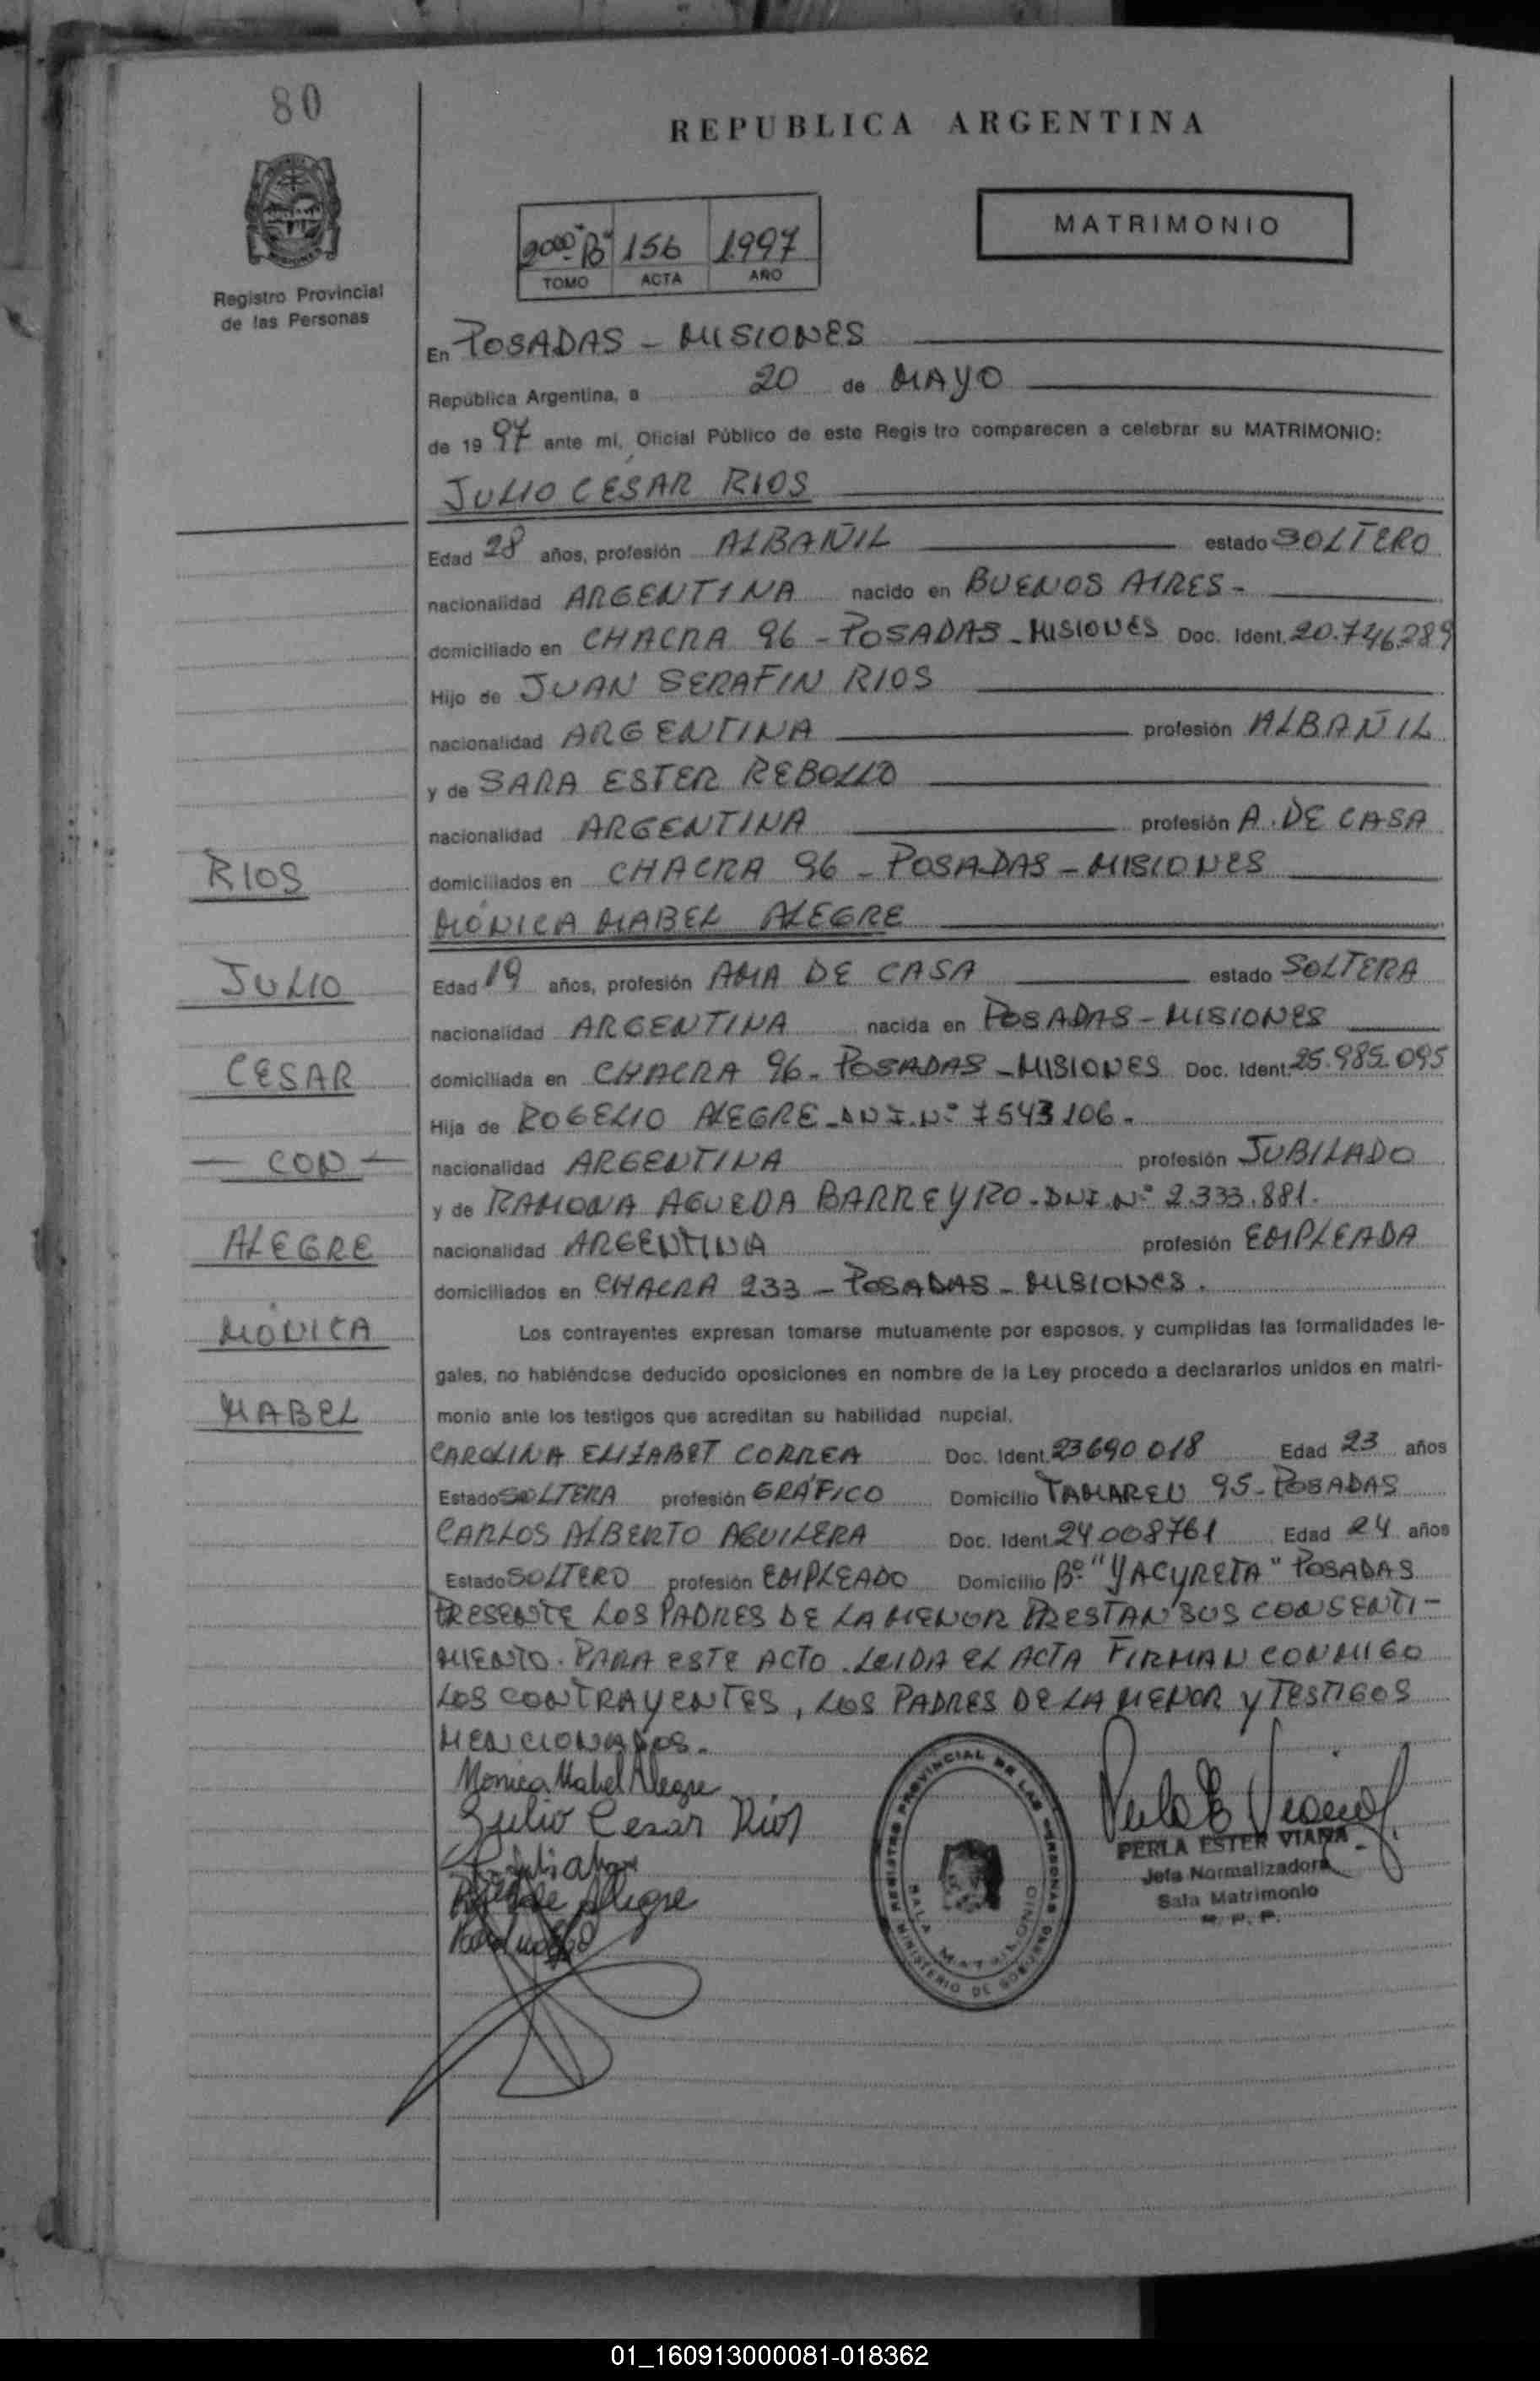 80
REPUBLICA ARGENTINA
Registro Provincial
de las Personas
2000 "B" 156 1997
TOMO ACTA AÑO
MATRIMONIO
En POSADAS - MISIONES
República Argentina, a 20 de MAYO
de 1997 ante mí, Oficial Público de este Regis tro comparecen a celebrar su MATRIMONIO:
JULIO CÉSAR RIOS
Edad 28 años, profesión ALBAÑIL estado SOLTERO
nacionalidad ARGENTINA nacido en BUENOS AIRES -
domiciliado en CHACRA 96 - POSADAS - MISIONES Doc. Ident. 20.746.289
Hijo de JUAN SERAFIN RIOS
nacionalidad ARGENTINA profesión ALBAÑIL
y de SARA ESTER REBOLLO
nacionalidad ARGENTINA profesión A. DE CASA
domiciliados en CHACRA 96 - POSADAS - MISIONES
MÓNICA MABEL ALEGRE
Edad 19 años, profesión AMA DE CASA estado SOLTERA
nacionalidad ARGENTINA nacida en POSADAS - MISIONES
domiciliada en CHACRA 96 - POSADAS - MISIONES Doc. Ident. 25.985.095
Hija de ROGELIO ALEGRE - DNI. Nº 7543106 -
nacionalidad ARGENTINA profesión JUBILADO
y de RAMONA AGUEDA BARREYRO - DNI. Nº 2.333.881.
nacionalidad ARGENTINA profesión EMPLEADA
domiciliados en CHACRA 233 - POSADAS - MISIONES.
Los contrayentes expresan tomarse mutuamente por esposos, y cumplidas las formalidades le-
gales, no habiéndose deducido oposiciones en nombre de la Ley procedo a declararlos unidos en matri-
monio ante los testigos que acreditan su habilidad nupcial.
CAROLINA ELIZABET CORREA Doc. Ident. 23690018 Edad 23 años
Estado SOLTERA profesión GRÁFICO Domicilio TAMAREU 95 - POSADAS
CARLOS ALBERTO AGUILERA Doc. Ident. 24008761 Edad 24 años
Estado SOLTERO profesión EMPLEADO Domicilio Bº "YACYRETA" POSADAS
PRESENTE LOS PADRES DE LA MENOR PRESTAN SUS CONSENTI-
MIENTO. PARA ESTE ACTO. LEIDA EL ACTA FIRMAN CONMIGO
LOS CONTRAYENTES, LOS PADRES DE LA MENOR Y TESTIGOS
MENCIONADOS.
RIOS
JULIO
CESAR
- CON -
ALEGRE
MÓNICA
MABEL
Monica Mabel Alegre
Julio Cesar Rios
Alegre
REGISTRO PROVINCIAL DE LAS PERSONAS
SALA MATRIMONIO
MINISTERIO DE GOBIERNO
PERLA ESTER VIANA
Jefa Normalizadora
Sala Matrimonio
R. P. P.
01_160913000081-018362